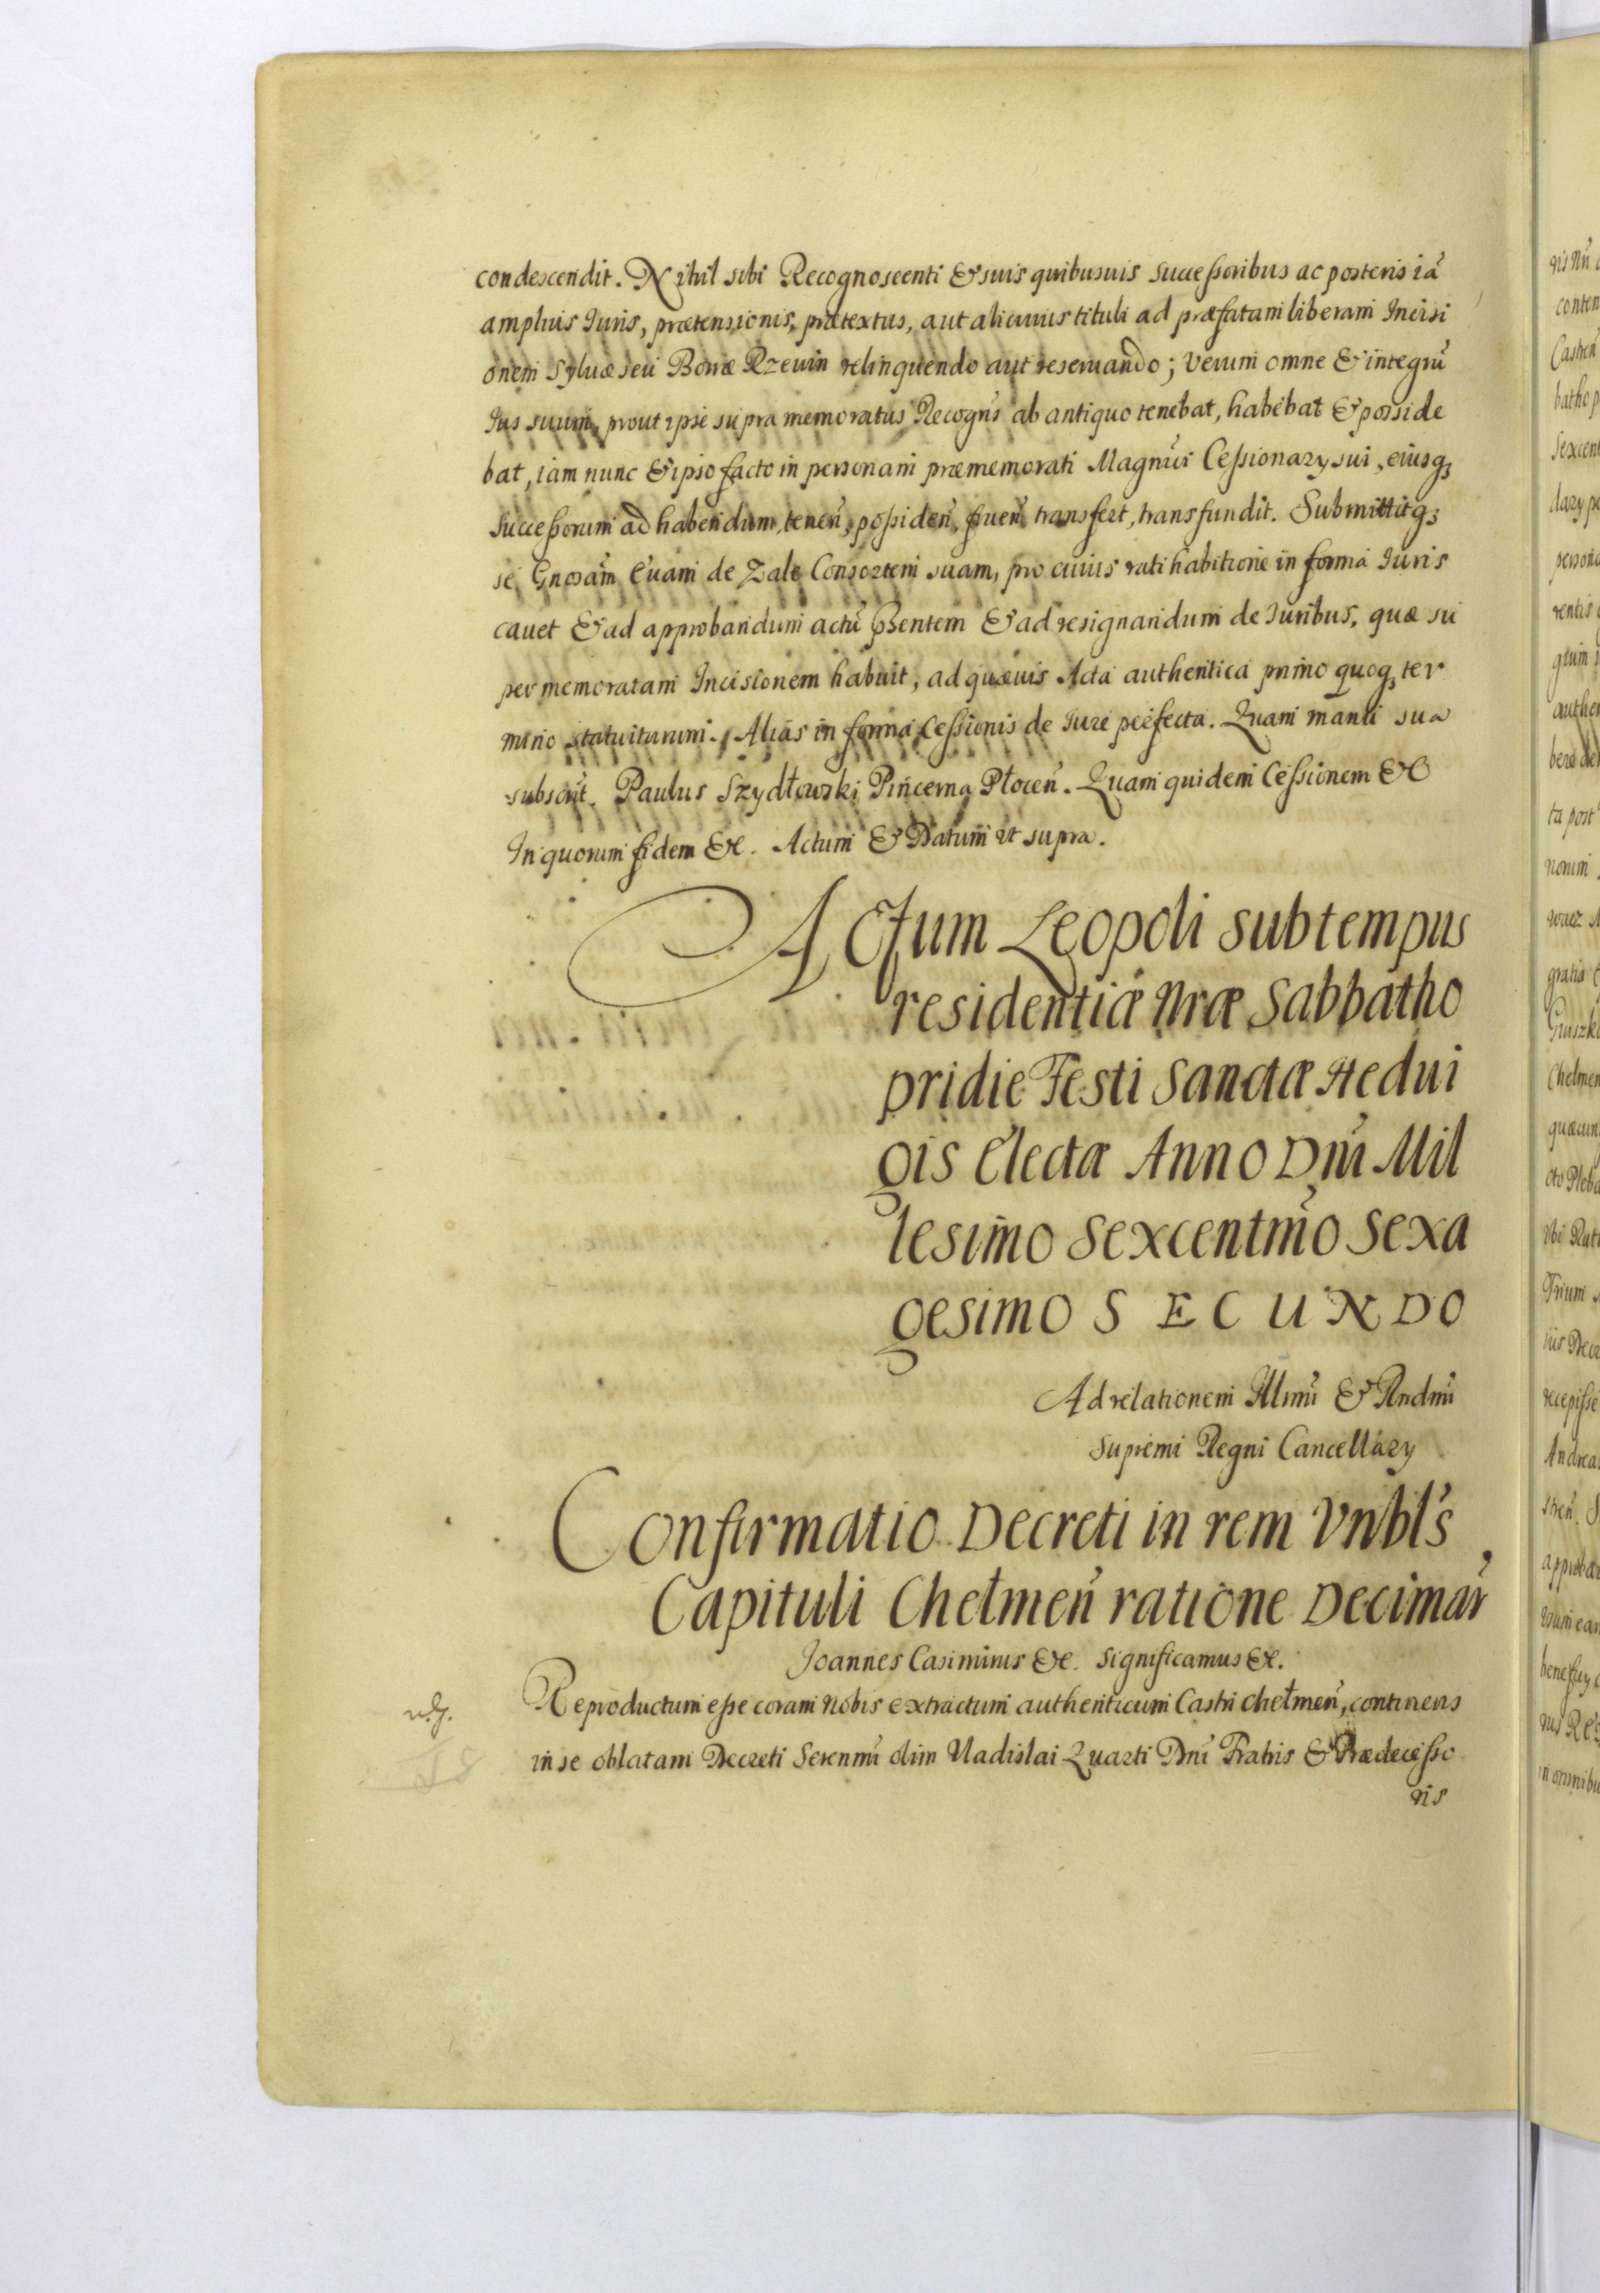 condescendit. Nihil sibi Recognoscenti & suis quibusuis successoribus ac posteris iā
amplius Juris, prætensionis, prætextus, aut alicuius tituli ad præfatam liberam Incisi
onem Sylvæ seu Borræ Rzevin relinquendo aut reseruando; verum omne & integrū
Jus suum, prout ipse supra memoratus Recogns̄ ab antiquo tenebat, habebat & posside
bat, iam nunc & ipso facto in personam præmemorati Magnīci Cessionary sui, eiusq;
successorum ad habendum, tenen̄, possiden̄, fruen̄ transfert, transfundit. Submittitq;
se Gnosām Evam de Zale Consortem suam, pro cuius ratihabitione in forma Juris
cavet & ad approbandum actū pn̄sentem & ad resignandum de Juribus, quæ su
per memoratam Incisionem habuit, ad quævis Acta authentica primo quoq; ter
mino statuiturum. Alias in forma Cessionis de Jure perfecta. Quam manu sua
subscrīt. Paulus Szydłowski Pincerna Płocen̄. Quam quidem Cessionem &c
In quorum fidem &c. Actum & Datum ut supra.
Actum Leopoli sub tempus
residentiæ nr̄æ Sabbatho
pridie Festi Sanctæ Hedui
gis Electæ Anno Dn̄i Mil
lesimo Sexcentmō Sexa
gesimo SECUNDO
Ad relationem Illmī & Rndmī
Supremi Regni Cancellary
Confirmatio Decreti in rem Vnbl̄s
Capituli Chełmen̄ ratione Decimar̄
Joannes Casimirus &c. Significamus &c.
Reproductum esse coram nobis extractum authenticum Castri Chełmen̄, continens
in se oblatam Decreti Serenmī olim Vladislai Quarti Dnī Fratris & Prædecesso
ris